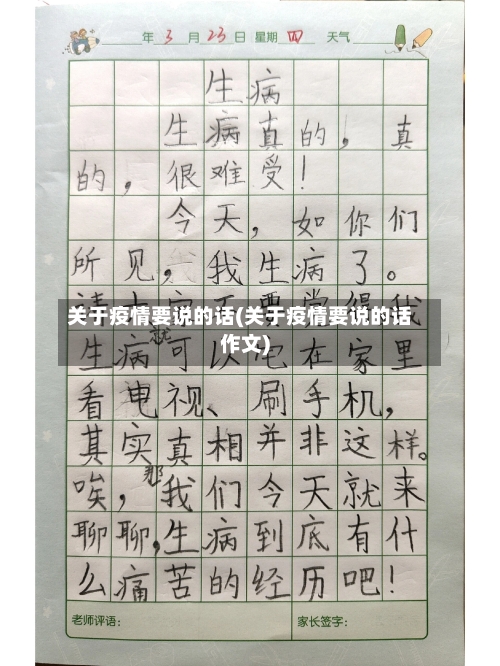 年 3 月 23 日 星期 四 天气
生病
生病真的，真
的，很难受！
今天，如你们
所见，我生病了。
关于疫情要说的话(关于疫情要说的话
作文)
生病就可以宅在家里
看电视、刷手机，
其实真相并非这样。
唉，那我们今天就来
聊聊，生病到底有什
么痛苦的经历吧！
老师评语： 家长签字：